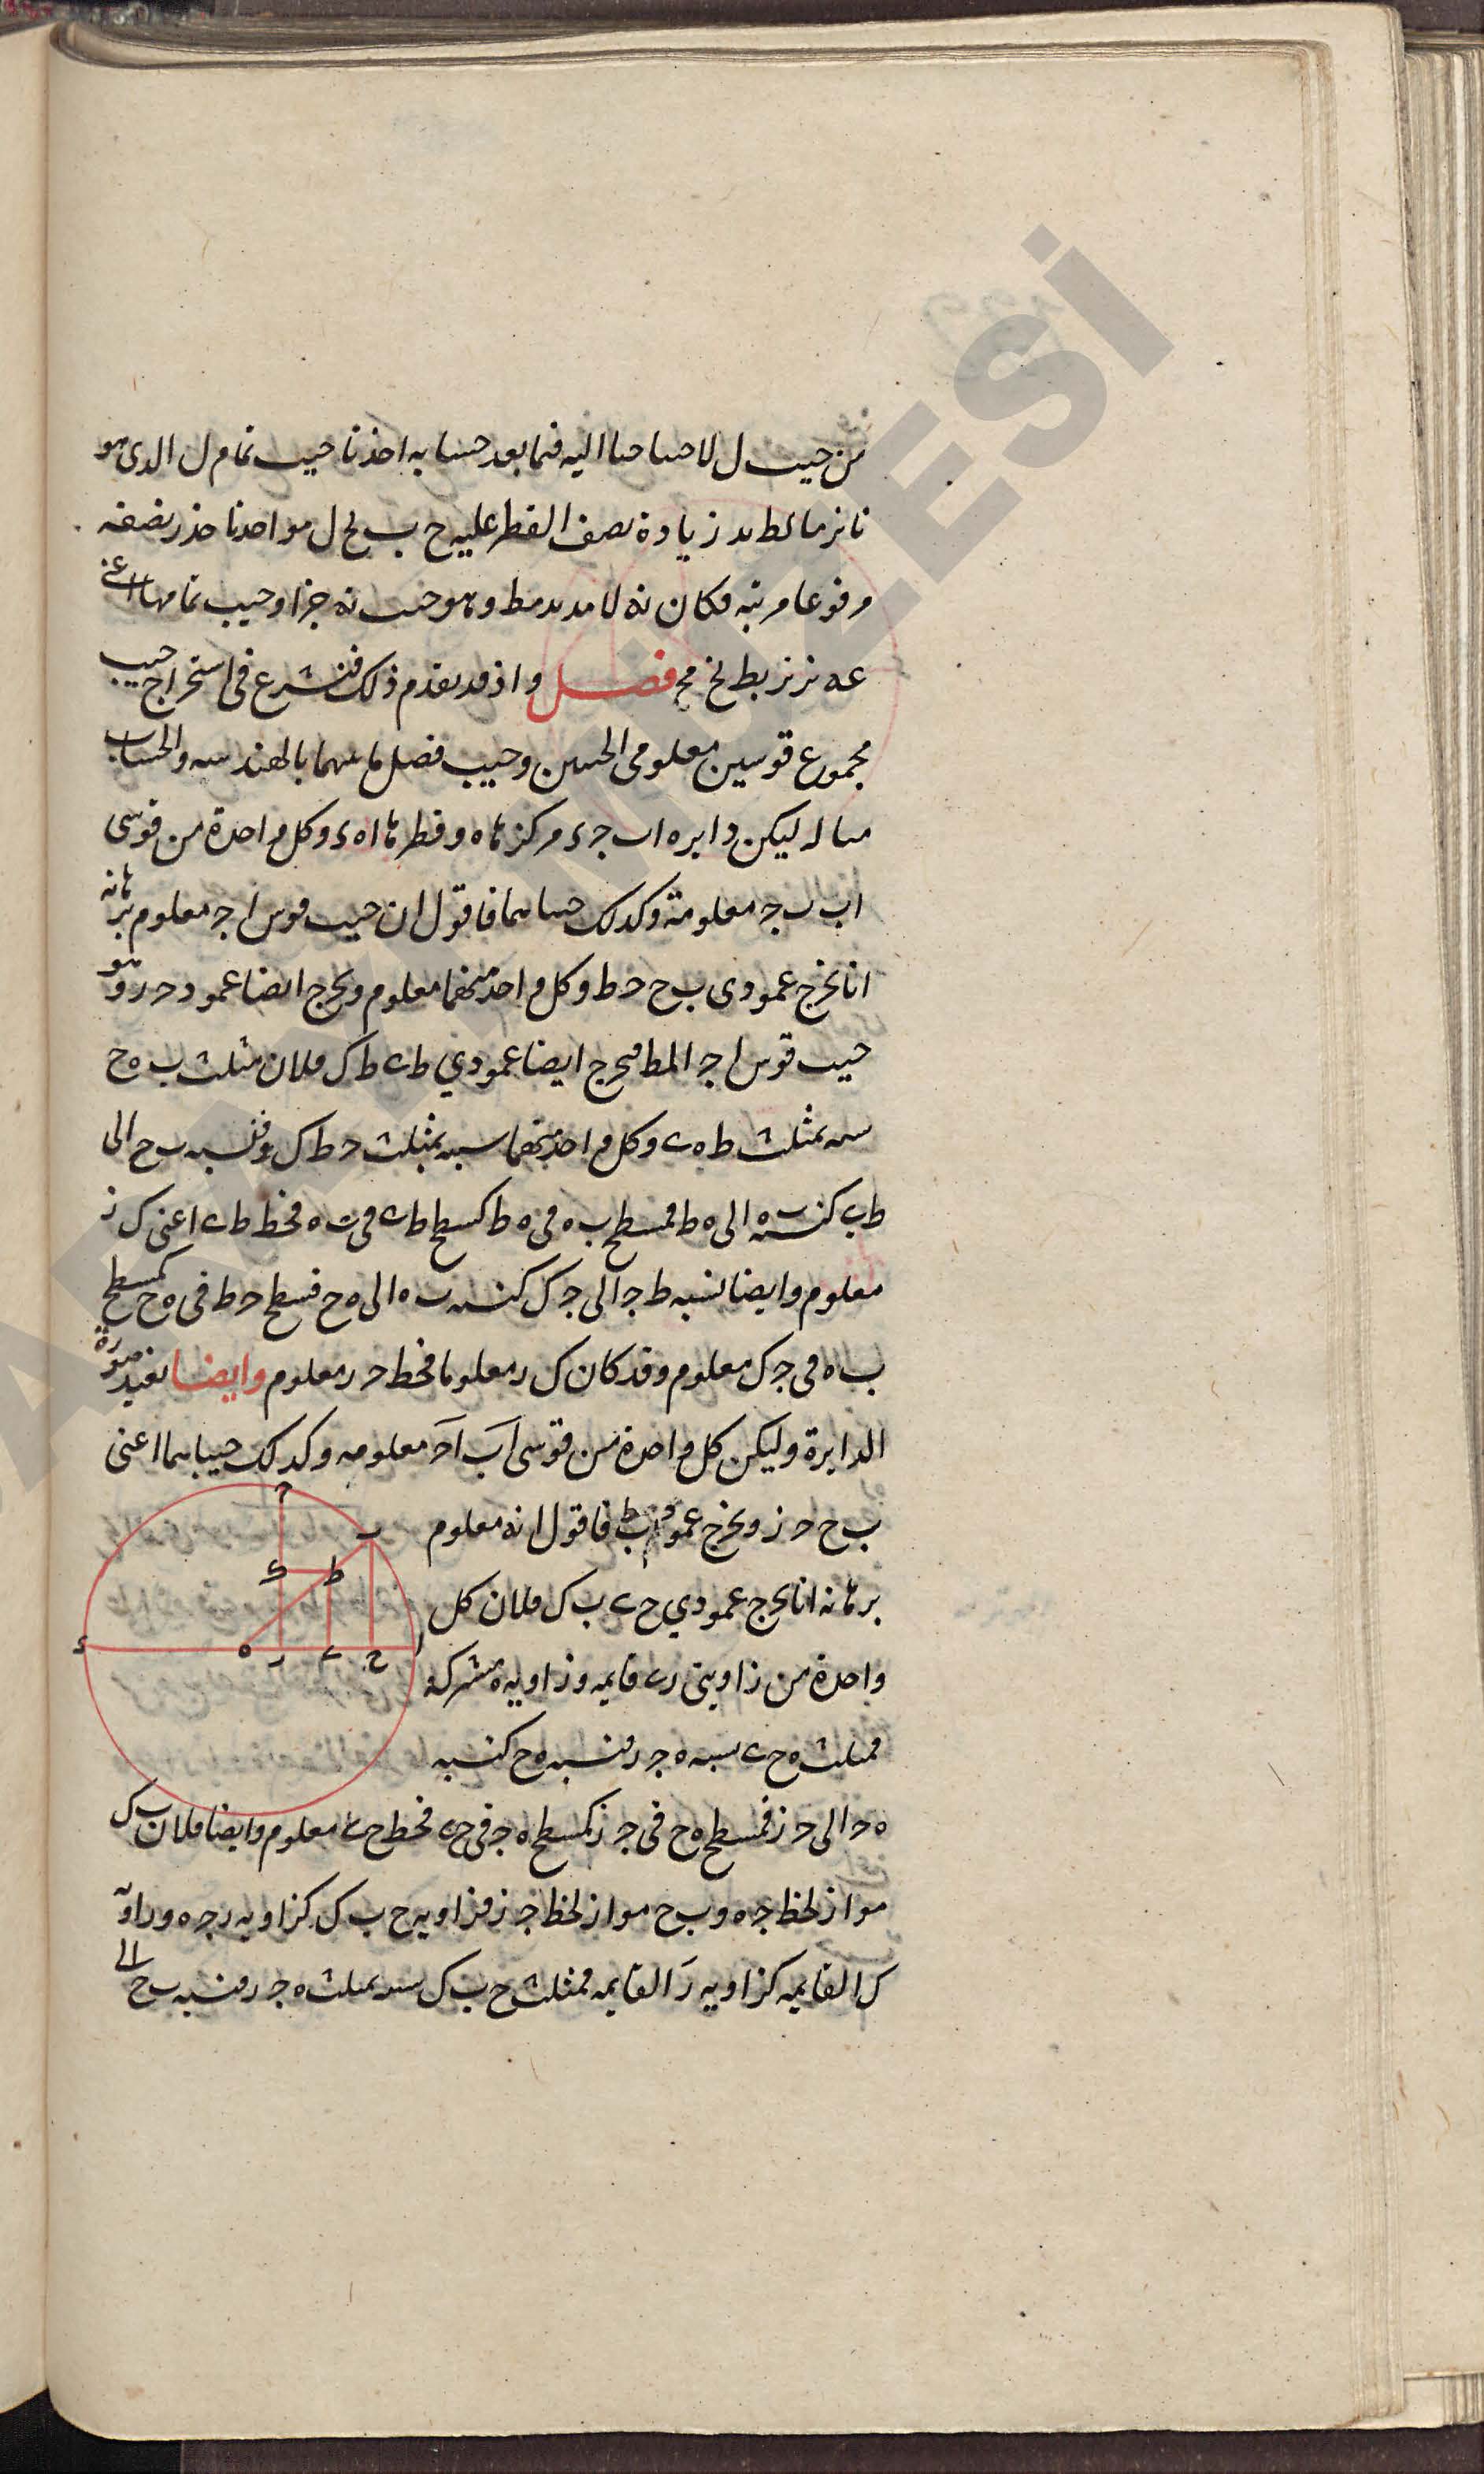 من جيب ل لاحتياجنا اليه فيما بعد حسابه اخذنا جيب تمام ل الذى هو
نا نر ما لط يد زيادة نصف القطر عليه ح ب لح ل مو اخدنا جذر نصفه
مرفوعا مرتبه فكان نه لا مد يد مط وهو جيب نه جزا وجيب تمامها اعنى
عه نر نر يط لح مح فصل واذ قد تقدم ذلك فنشرع فى استخراج جيب
مجموع قوسين معلومى الجيبين وجيب فضل ما بينهما بالهندسه والحساب
مثاله ليكن دايره اب جء مركزها ه وقطرها اهء وكل واحدة من قوسى
اب ب ج معلومة وكذلك جيباهما فاقول ان جيب قوس ا ج معلوم برهانه
انا نخرج عمودى ب ح حط وكل واحد منهما معلوم ونخرج ايضا عمود حر وهو
جيب قوس ا ج المط فنخرج ايضا عمودي طى ط ك فلان مثلث ب ه ح
شبيه بمثلث ط ه ى وكل واحد منهما شبيه بمثلث حط ك فنسبه ب ح الى
طى كنسبه ب ه الى ه ط فمسطح ب ه فى ه ط كسطح طى فى ب ه فخط طى اعنى ك ز
معلوم وايضا نسبه ط ج الى ج ك كنسبه ب ه الى ه ح فسطح حط فى ه ح كمسطح
ب ه فى ج ك معلوم وقد كان ك ر معلوما فخط حر معلوم وايضا نعيد صورة
الدايرة وليكن كل واحدة من قوسى اب اح معلومه وكذلك جيباهما اعنى
ب ح ح ز ونخرج عمود ب ط فاقول انه معلوم
برهانه انا نخرج عمودي ح ى ب ك فلان كل
واحدة من زاويتى رى قايمه وزاويه ه مشتركة
فمثلث ه ح ى شبيه ه ج ر فنسبه ه ح كنسبه
ه ح الى ح ز فمسطح ه ح فى ج ز كمسطح ه ج فى ح ى فخط ح ى معلوم وايضا فلان ب ك
مواز لخط ج ه و ب ح مواز لخط ج ز فزاويه ح ب ك كزاويه ر ج ه وزاويه
ك القايمه كزاويه ر القايمه فمثلث ح ب ك شبيه بمثلث ه ج ر فنسبه ب ح الى
ج
ب
ك
ط
ء
ه
ر
ى
ح
ا